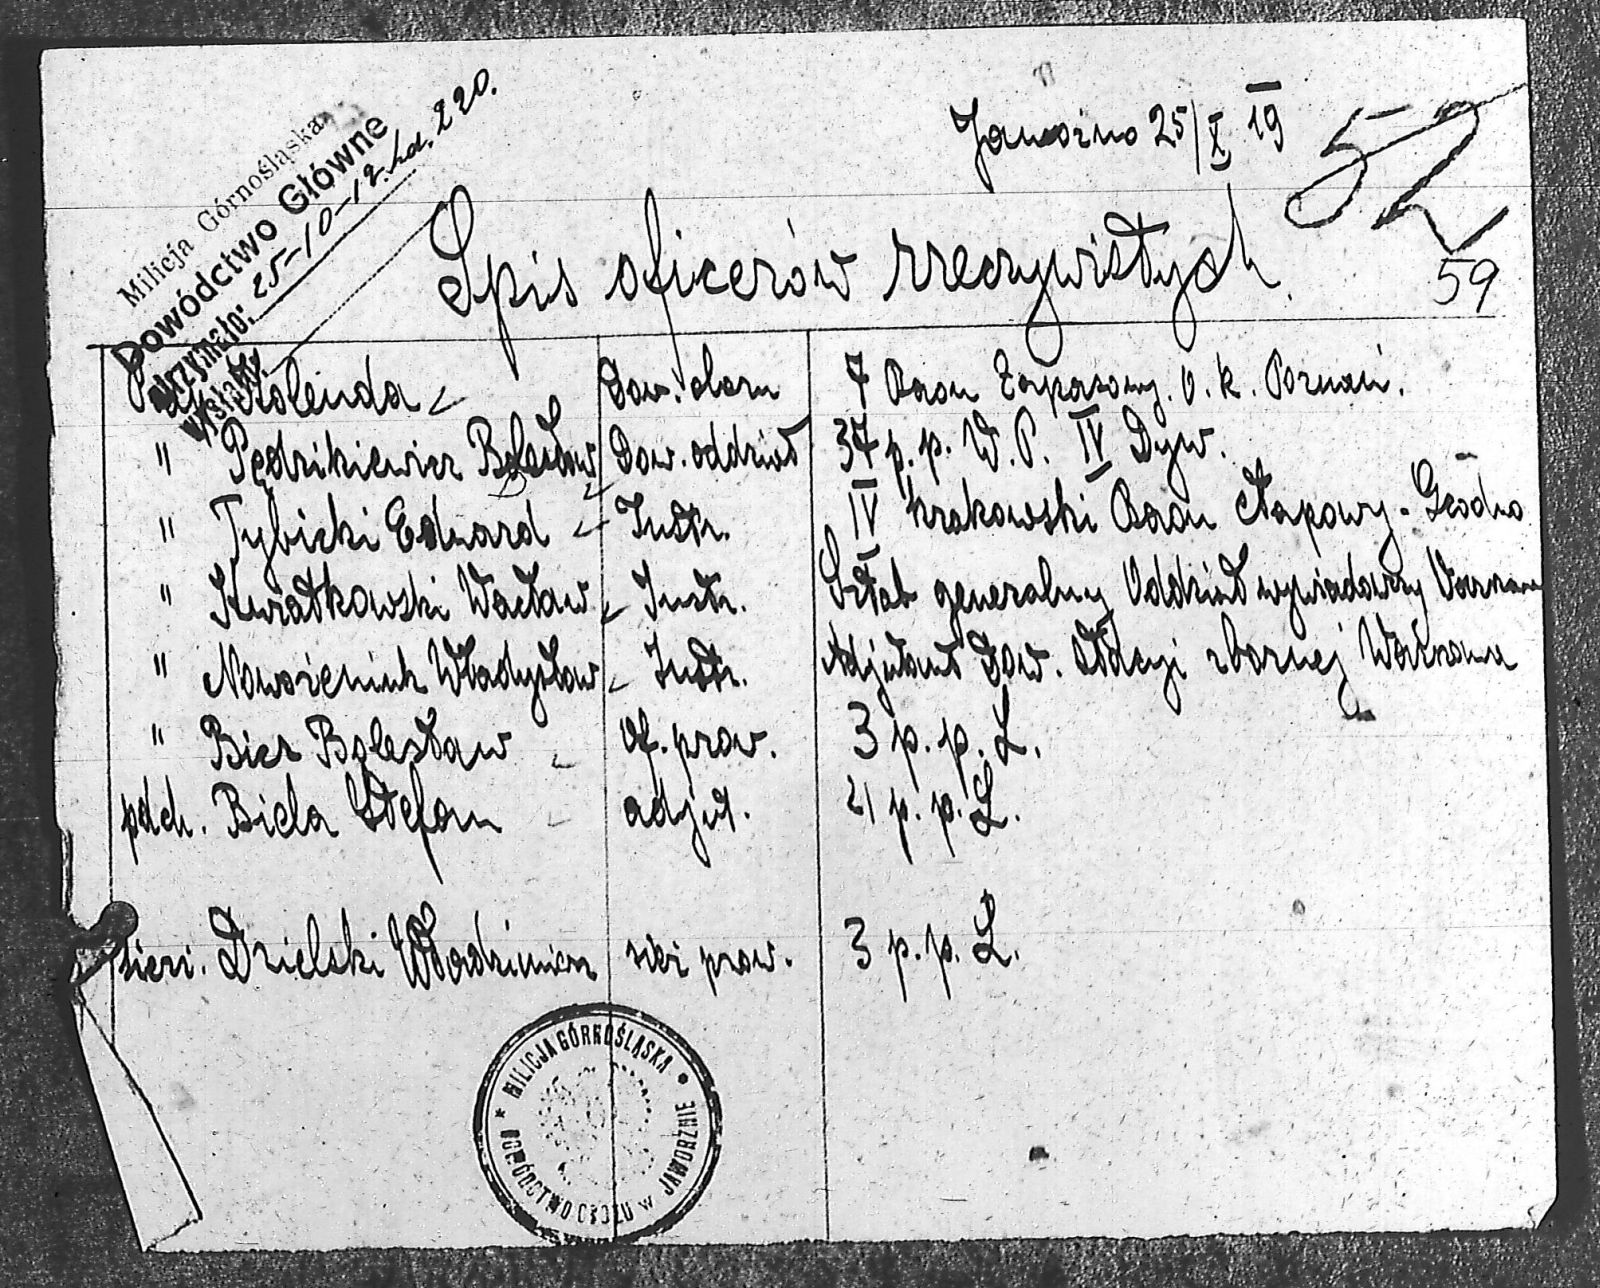 Milicja Górnośląska
Dowództwo Główne
Otrzymało: 25-10-19. Ld. 220.
Wysłano:
Jaworzno 25/X 19
52
59
Spis oficerów rzeczywistych
Kolenda Dow. obozu 7 Baon Zapasowy. O. K. Poznań.
" Pędzikiewicz Bolesław Dow. oddział 37 p. p. W. P. IV Dyw.
" Tybicki Edward Instr. IV krakowski Baon etapowy - Grodno
" Kwiatkowski Wacław Instr. Sztab generalny Oddział wywiadowczy Warszawa
" Władysław Instr. Adjutant Dow. stacyi zbornej Warszawa
" Bier Bolesław of. prow. 3 p. p. L.
pdch. Biela Stefan adjut. 4 p. p. L.
sierż. Dzielski Włodzimierz sierż prow. 3 p. p. L.
MILICJA GÓRNOŚLĄSKA
DOWÓDZTWO OBOZU w JAWORZNIE